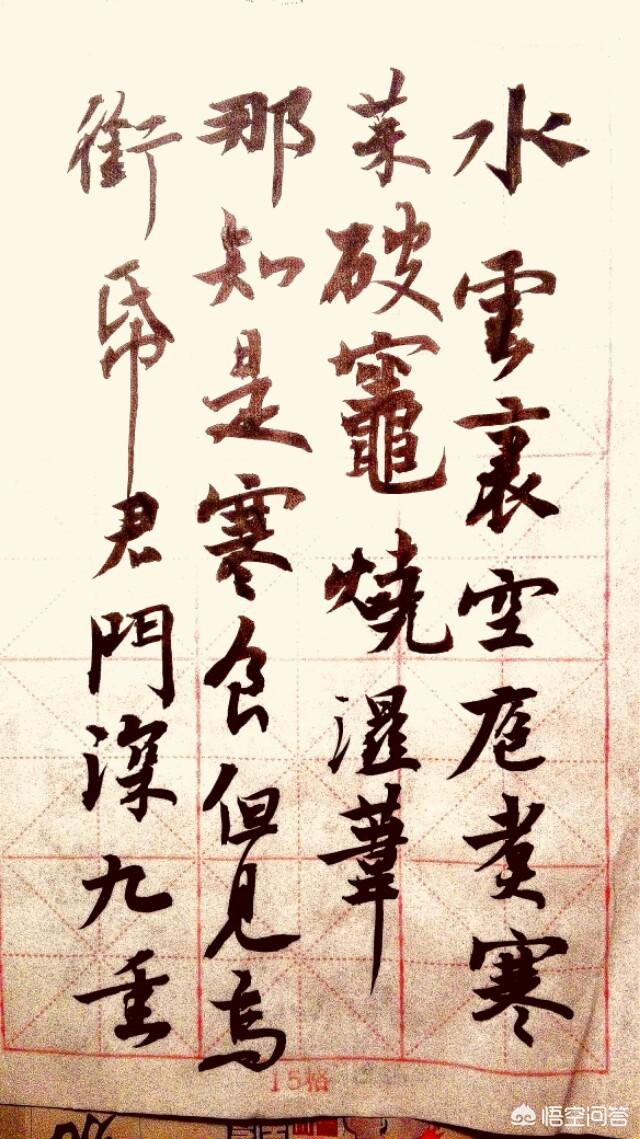 水雲裏空庖煮寒
菜破竈燒濕葦
那知是寒食但見烏
銜帋君門深九重
15格
悟空问答